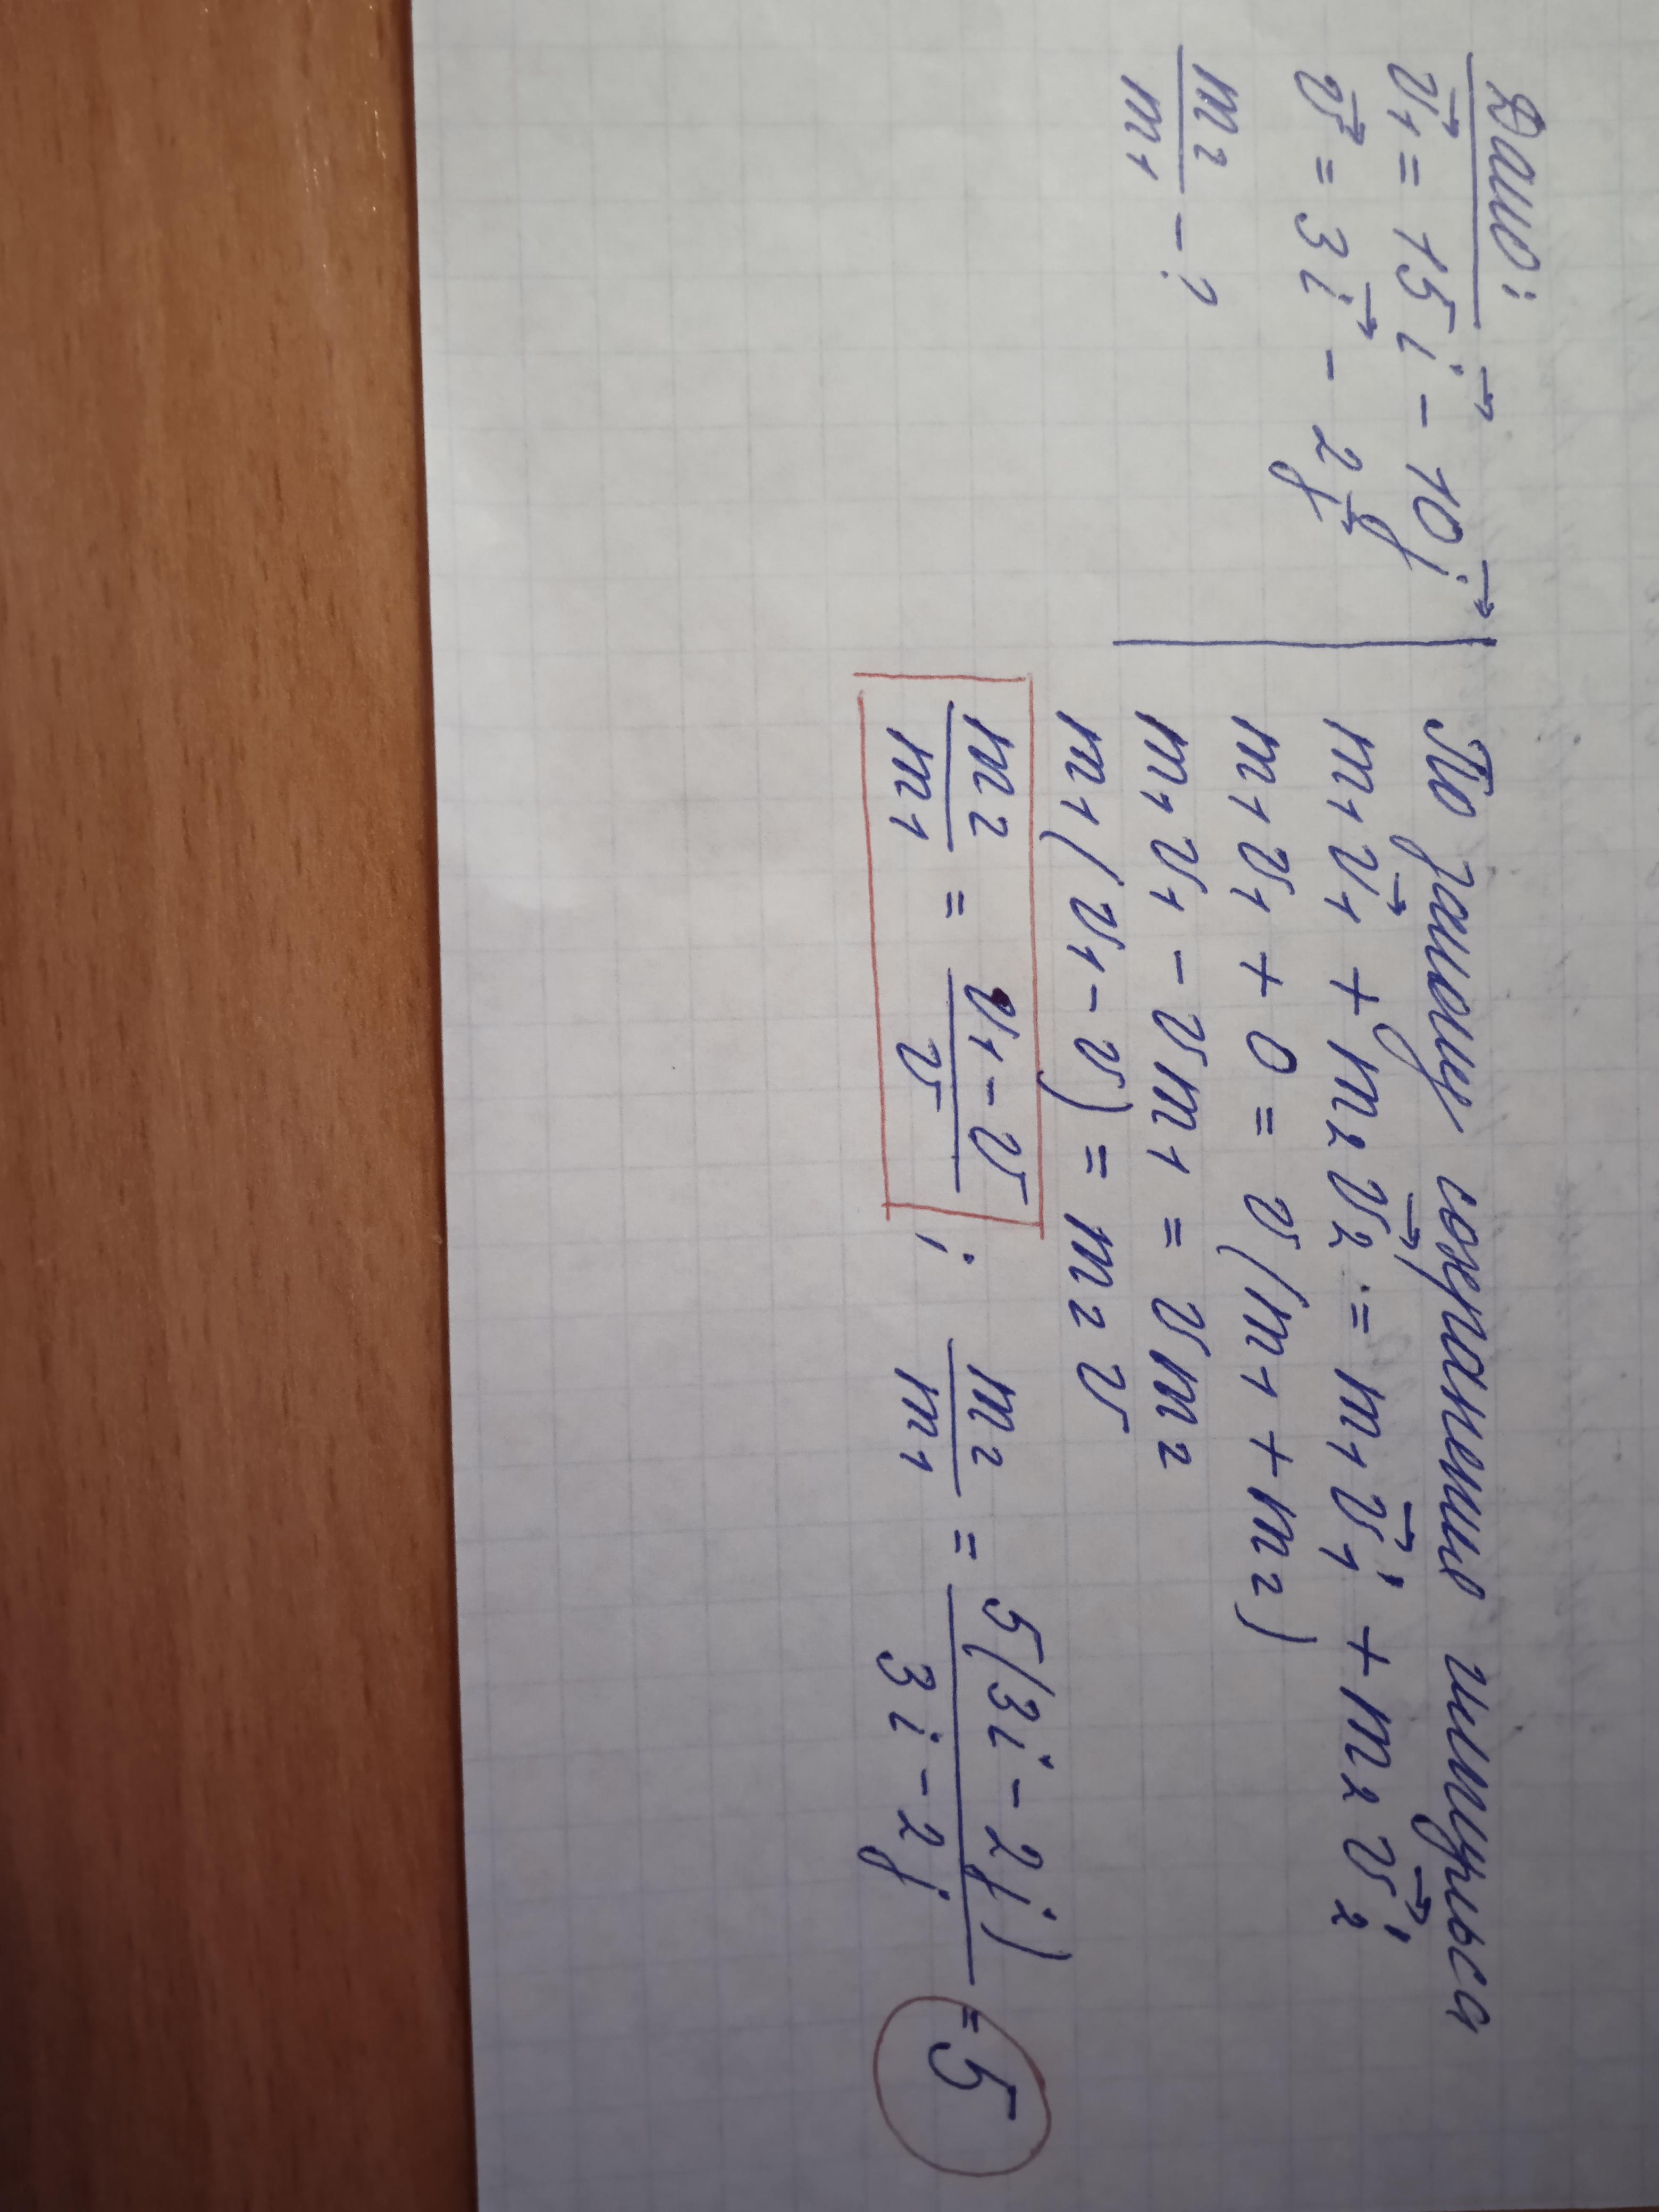 Дано:
v⃗₁ = 15 i⃗ - 10 j⃗
v⃗ = 3 i⃗ - 2 j⃗
m₂/m₁ - ?
По закону сохранения импульса
m₁v⃗₁ + m₂v⃗₂ = m₁v⃗₁' + m₂v⃗₂'
m₁v₁ + 0 = v(m₁ + m₂)
m₁v₁ - vm₁ = vm₂
m₁(v₁ - v) = m₂v
m₂/m₁ = (v₁ - v)/v ; m₂/m₁ = 5(3i - 2j)/(3i - 2j) = 5